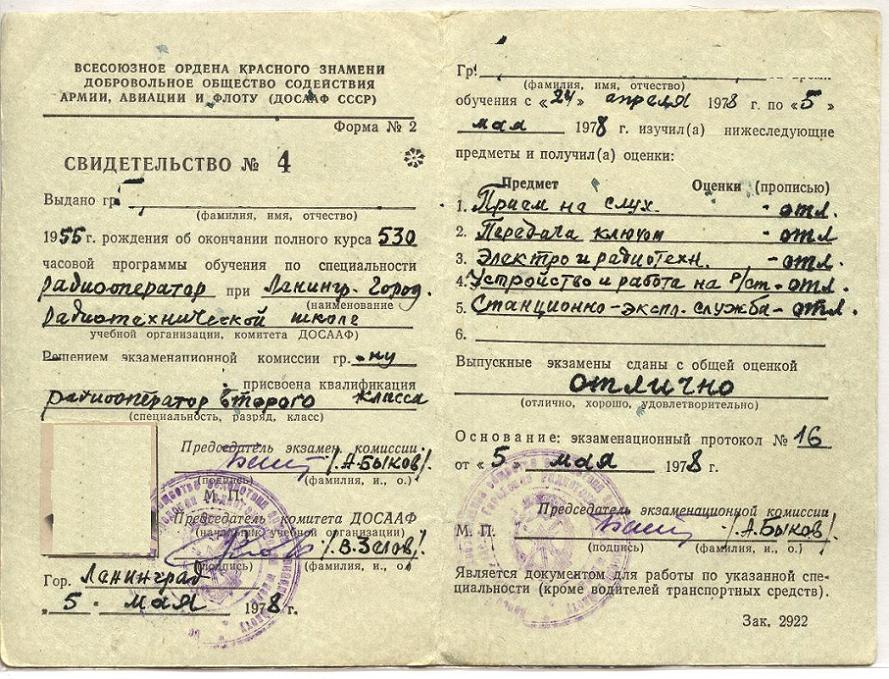 ВСЕСОЮЗНОЕ ОРДЕНА КРАСНОГО ЗНАМЕНИ
ДОБРОВОЛЬНОЕ ОБЩЕСТВО СОДЕЙСТВИЯ
АРМИИ, АВИАЦИИ И ФЛОТУ (ДОСААФ СССР)
Форма № 2
СВИДЕТЕЛЬСТВО № 4
Выдано гр.
(фамилия, имя, отчество)
1955 г. рождения об окончании полного курса 530
часовой программы обучения по специальности
радиооператор при Ленингр. Город.
(наименование
радиотехнической школе
учебной организации, комитета ДОСААФ)
Решением экзаменационной комиссии гр. -ну
присвоена квалификация
радиооператор второго класса
(специальность, разряд, класс)
Председатель экзамен. комиссии
/А.Быков/.
(подпись) (фамилия, и., о.)
М. П.
Председатель комитета ДОСААФ
(начальник учебной организации)
(подпись) (фамилия, и., о.)
Гор. Ленинград
„ 5 . мая 1978 г.
Гр.
(фамилия, имя, отчество)
обучения с «24» апреля 1978 г. по «5»
мая 1978 г. изучил(а) нижеследующие
предметы и получил(а) оценки:
Предмет Оценки (прописью)
1. Прием на слух. - отл.
2. Передача ключом - отл
3. Электро и радиотехн. - отл.
4. Устройство и работа на р/ст. - отл.
5. Станционно-экспл. служба - отл.
6.
Выпускные экзамены сданы с общей оценкой
отлично
(отлично, хорошо, удовлетворительно)
Основание: экзаменационный протокол № 16
от «5 мая 1978 г.
Председатель экзаменационной комиссии
М. П. /А.Быков/.
(подпись) (фамилия, и., о.)
Является документом для работы по указанной спе-
циальности (кроме водителей транспортных средств).
Зак. 2922